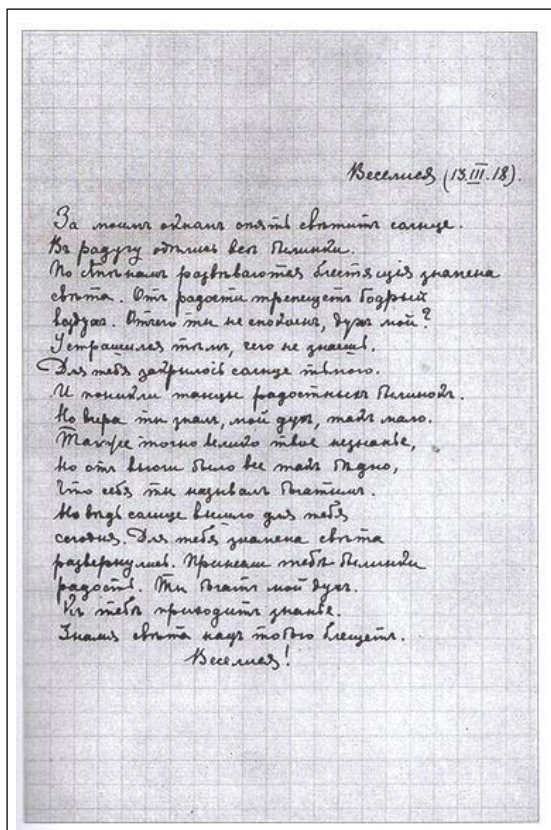 Веселися (13.III.18).
За моимъ окнамъ опять свѣтитъ солнце.
Въ радугу одѣлись всѣ былинки.
По стѣнамъ развѣваются блестящія знамена
свѣта. Отъ радости трепещетъ бодрый
воздухъ. Отчего ты не спокоенъ, духъ мой?
Устрашился тѣмъ, чего не знаешь.
Для тебя закрылось солнце тьмою.
И поникли танцы радостныхъ былинокъ.
Но вчера ты зналъ, мой духъ, такъ мало.
Также точно велико твое незнанье,
Но отъ вьюги было все такъ бѣдно,
Что себя ты называлъ богатымъ.
Но вѣдь солнце вышло для тебя
сегодня. Для тебя знамена свѣта
развернулись. Принесли тебѣ былинки
радость. Ты богатъ мой духъ.
Къ тебѣ приходитъ знанье.
Знамя свѣта надъ тобою блещетъ.
Веселися!